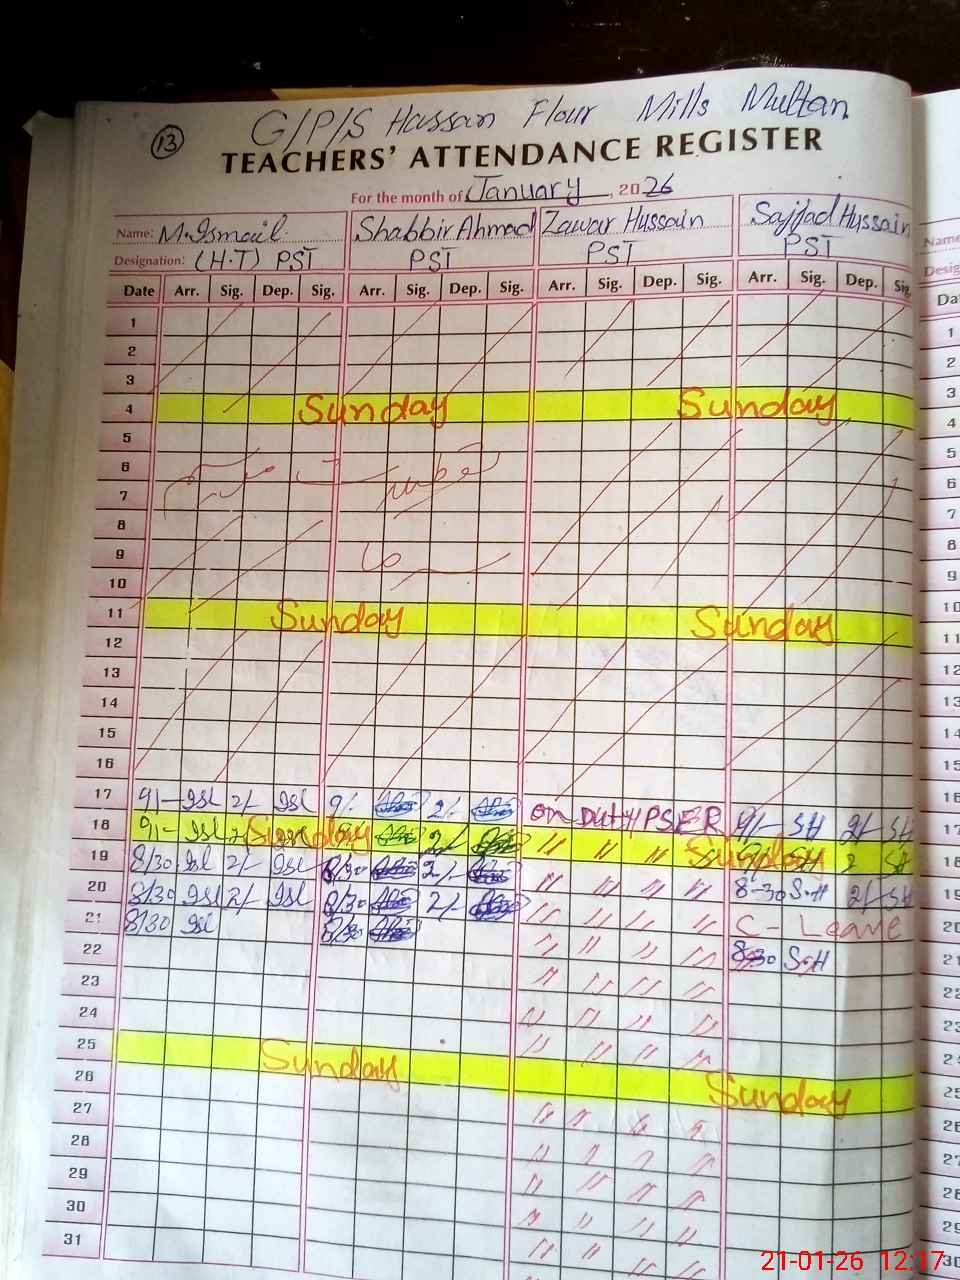 G/P/S Hassan Flour Mills Multan.
13
TEACHERS' ATTENDANCE REGISTER
For the month of January, 2026
Name: M.Ismail Shabbir Ahmad Zawar Hussain Sajjad Hussain Name
Designation: (H.T) PST PST PST PST Desig
Date Arr. Sig. Dep. Sig. Arr. Sig. Dep. Sig. Arr. Sig. Dep. Sig. Arr. Sig. Dep. Sig. Da
1 1
2 2
3 3
4 Sunday Sunday 4
5 5
6 6
7 7
8 8
9 9
10 10
11 Sunday Sunday 11
12 12
13 13
14 14
15 15
16 16
17 9/- Isl 2/- Isl 9/- 2/- on Duty PSER 9/- SH 2/- SH 17
18 9/- Isl 2/- Isl Sunday 2/- " " " " Sunday SH 2 SH 18
19 8/30 Isl 2/- Isl 8/30 2/- " " " " 8-30 S.H 2/- SH 19
20 8/30 Isl 2/- Isl 8/30 2/- " " " " C-Leave 20
21 8/30 Isl 8/30 " " " " 8-30 S.H 21
22 " " " " 22
23 " " " " 23
24 " " " " 24
25 Sunday Sunday 25
26 " " " " 26
27 " " " " 27
28 " " " " 28
29 " " " " 29
30 " " 30
31
21-01-26 12:17